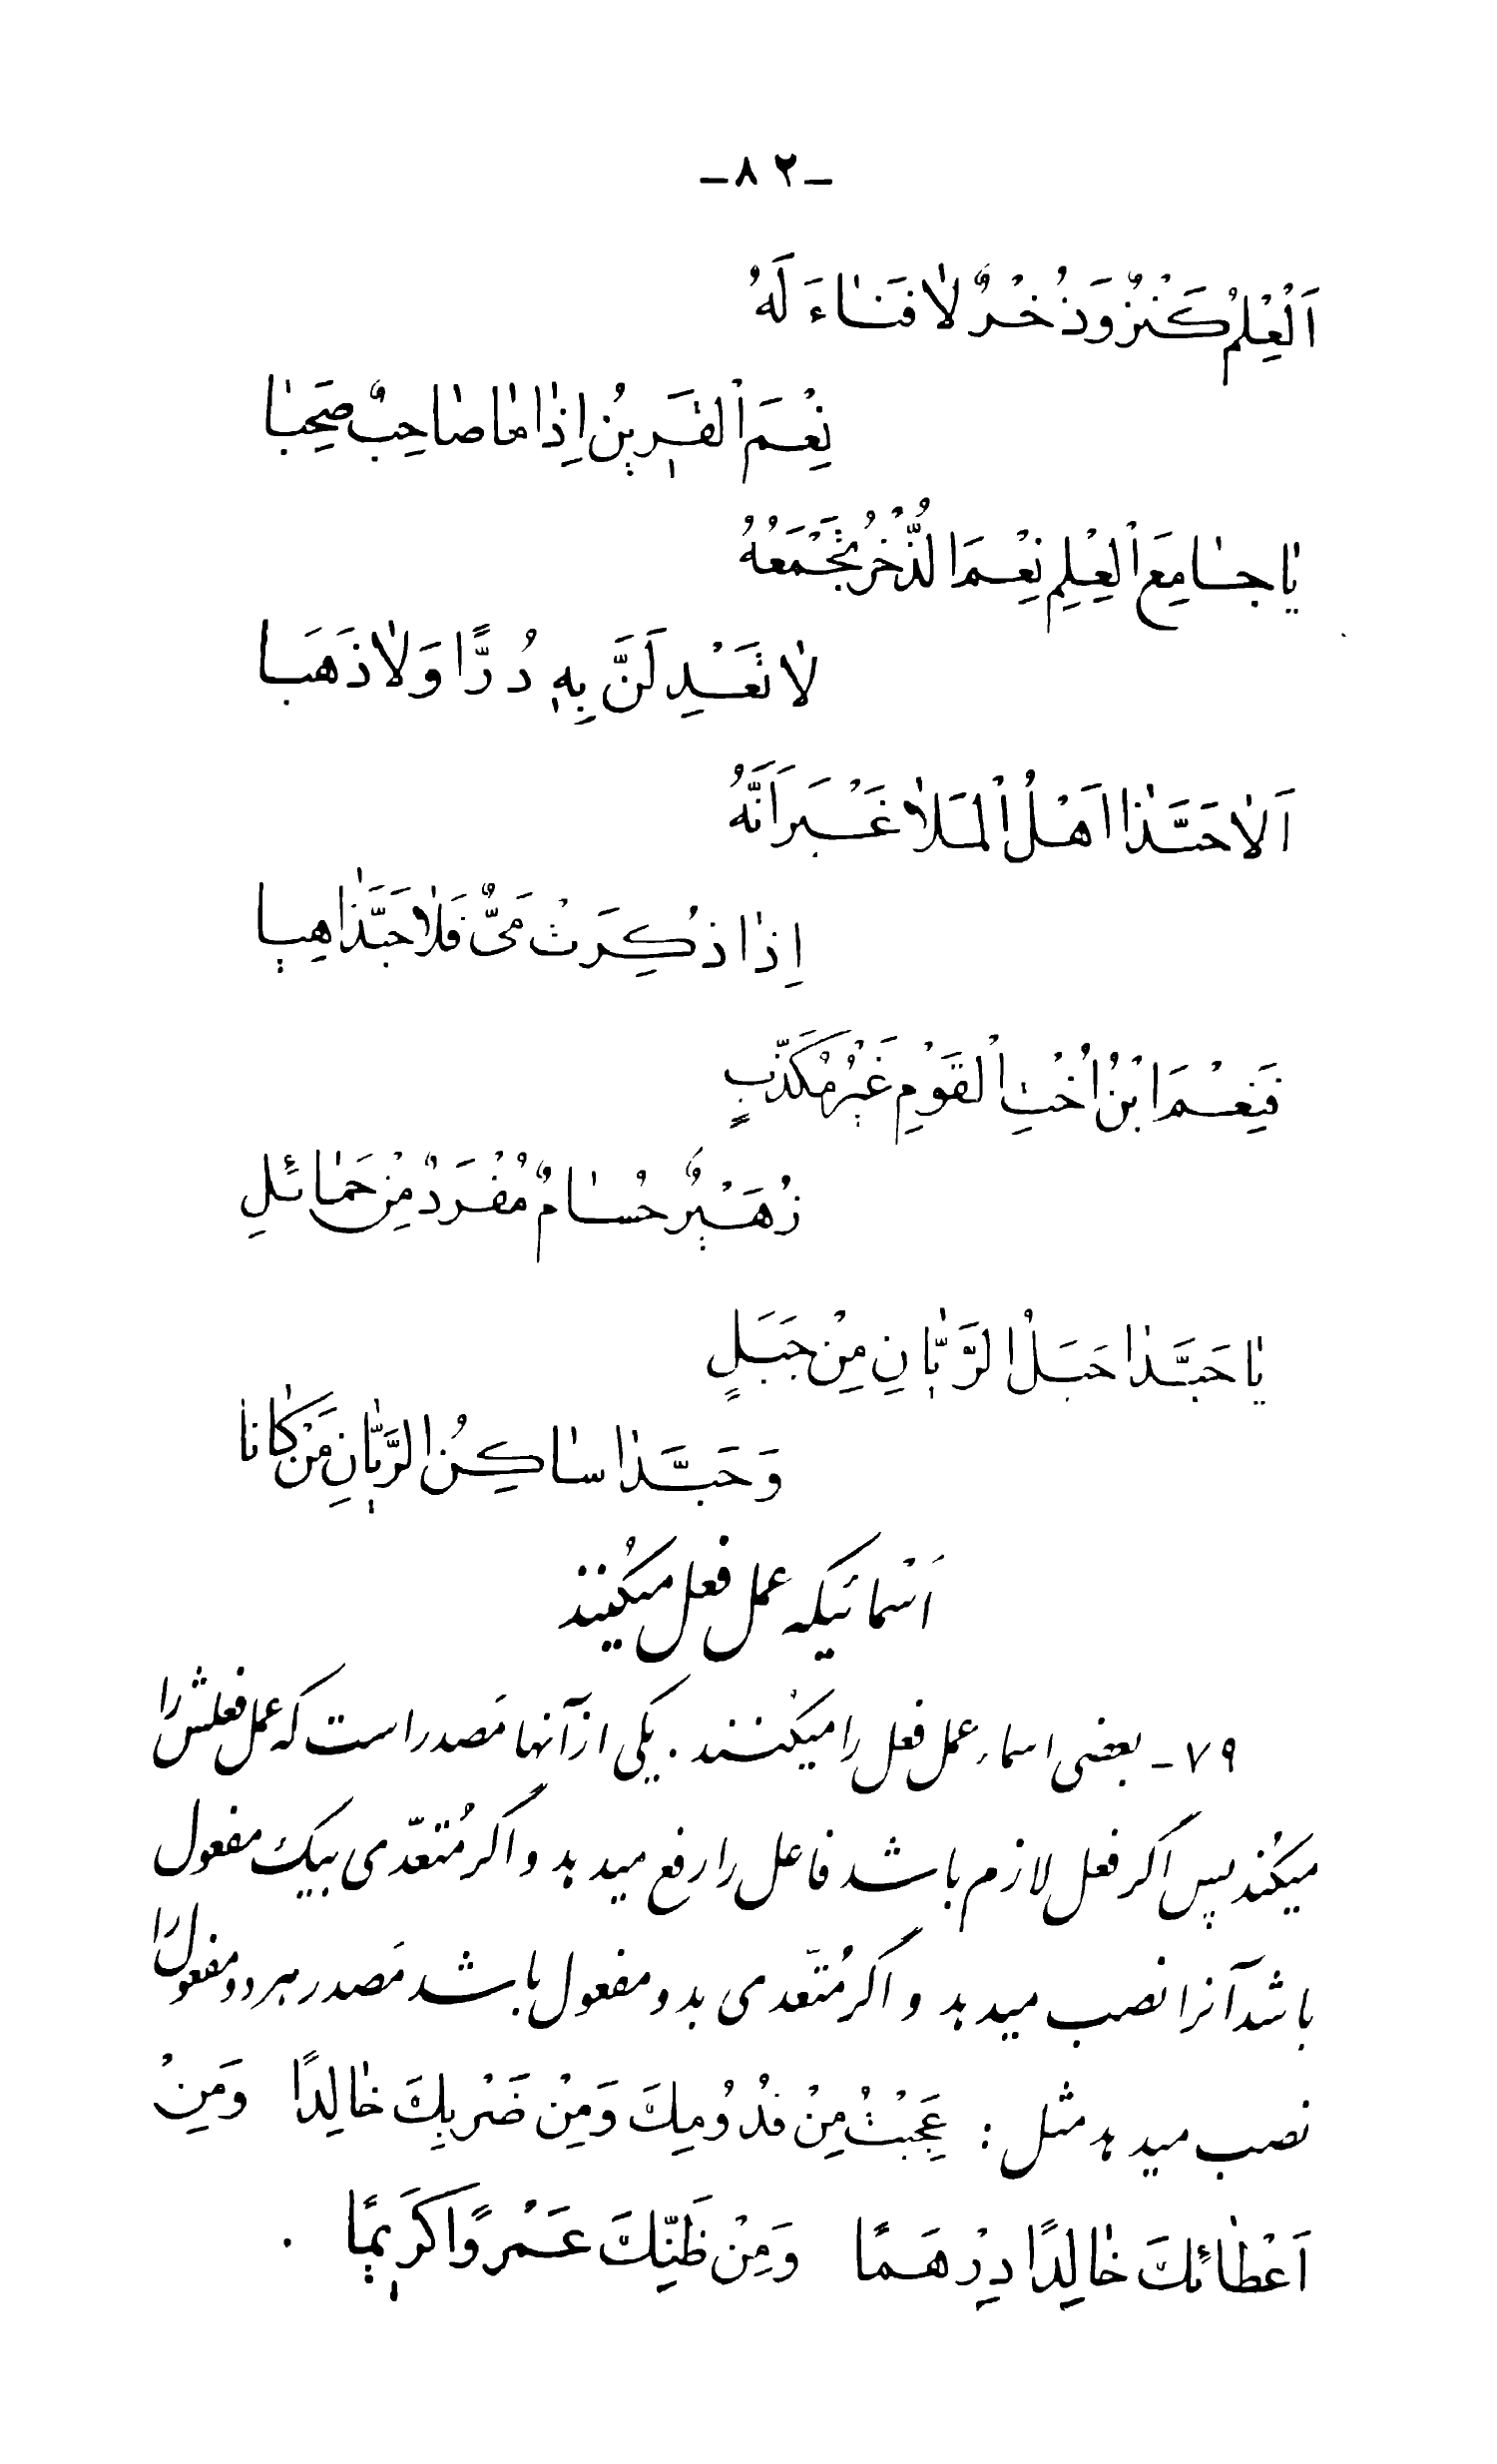 ـ۸۲ـ
اَلْعِلْمُ كَنْزٌ وَذُخْرٌ لٰا فَنٰاءَ لَهُ
نِعْمَ الْقَرينُ اِذٰا مٰا صٰاحِبٌ صَحِبٰا
يٰا جٰامِعَ الْعِلْمِ نِعْمَ الذُّخْرُ تَجْمَعُهُ
لٰا تَعْدِلَنَّ بِهِ دُرًّا وَلٰا ذَهَبٰا
اَلٰا حَبَّذٰا اَهْلُ الْمَلٰا غَيْرَ اَنَّهُ
اِذٰا ذُكِرَتْ مَيٌّ فَلٰا حَبَّذٰا هِيٰا
فَنِعْمَ ابْنُ اُخْتِ الْقَوْمِ غَيْرُ مُكَذَّبٍ
زُهَيْرٌ حُسٰامٌ مُفْرَدٌ مِنْ حَمٰائِلِ
يٰا حَبَّذٰا جَبَلُ الرَّيّٰانِ مِنْ جَبَلٍ
وَحَبَّذٰا سٰاكِنُ الرَّيّٰانِ مَنْ كٰانٰا
اَسْمائیکه عمل فعل میکُنند
۷۹ـ بعضی اسماء عمل فعل را میکُنند . یکی از آنها مَصدر است که عمل فعلش را
میکُند پس اگر فعل لازم باشد فاعل را رفع میدهد و اگر مُتعدّی بیک مفعول
باشد آنرا نصب میدهد و اگر مُتعّدی بدو مفعول باشد مَصدر هر دو مفعول را
نصب میدهد مثل : عَجِبْتُ مِنْ قُدُومِكَ وَمِنْ ضَرْبِكَ خٰالِدًا وَمِنْ
اَعْطٰائِكَ خٰالِدًا دِرْهَمًا وَمِنْ ظَنِّكَ عَمْرًوا كَريمًا .